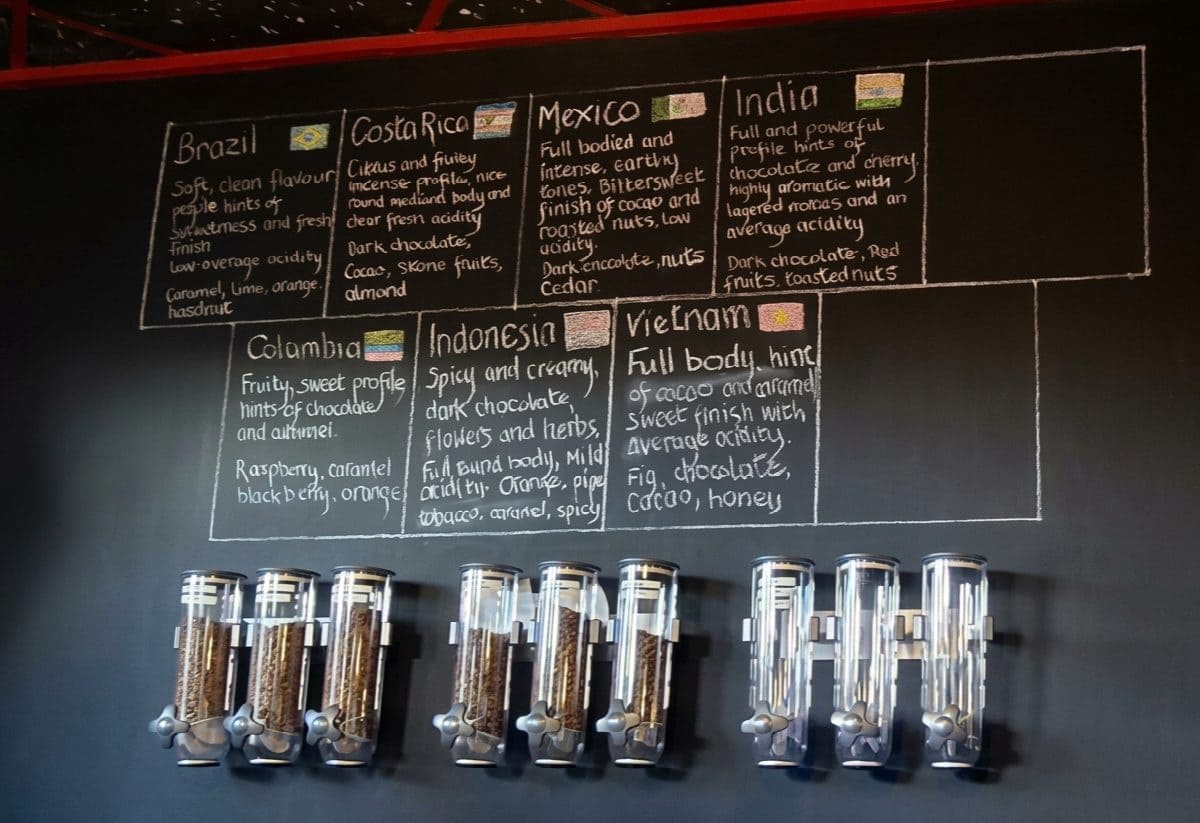 Brazil
Soft, clean flavour
hints of
and fresh
finish
Low-overage acidity
Caramel, Lime, orange.
Costa Rica
and fruity
profile, nice
round and body and
clear fresh acidity
Dark chocolate,
Cacao, Skone fruits,
almond
Mexico
Full bodied and
intense, earthy
tones, Bittersweet
finish of cacao and
roasted nuts, Low
acidity.
Dark , nuts
Cedar.
India
Full and powerful
profile hints of
chocolate and cherry,
highly aromatic with
and an
average acidity
Dark chocolate, Red
fruits, toasted nuts
Colambia
Fruity, sweet profile
hints of chocolate
and
Raspberry,
blackberry, orange
Indonesia
Spicy and creamy,
dark chocolate,
flowers and herbs,
Full body, Mild
Orange, pipe
tobacco, caramel, spicy
Vietnam
Full body, hint
of cacao and caramel
sweet finish with
average acidity.
Fig, chocolate,
Cacao, honey